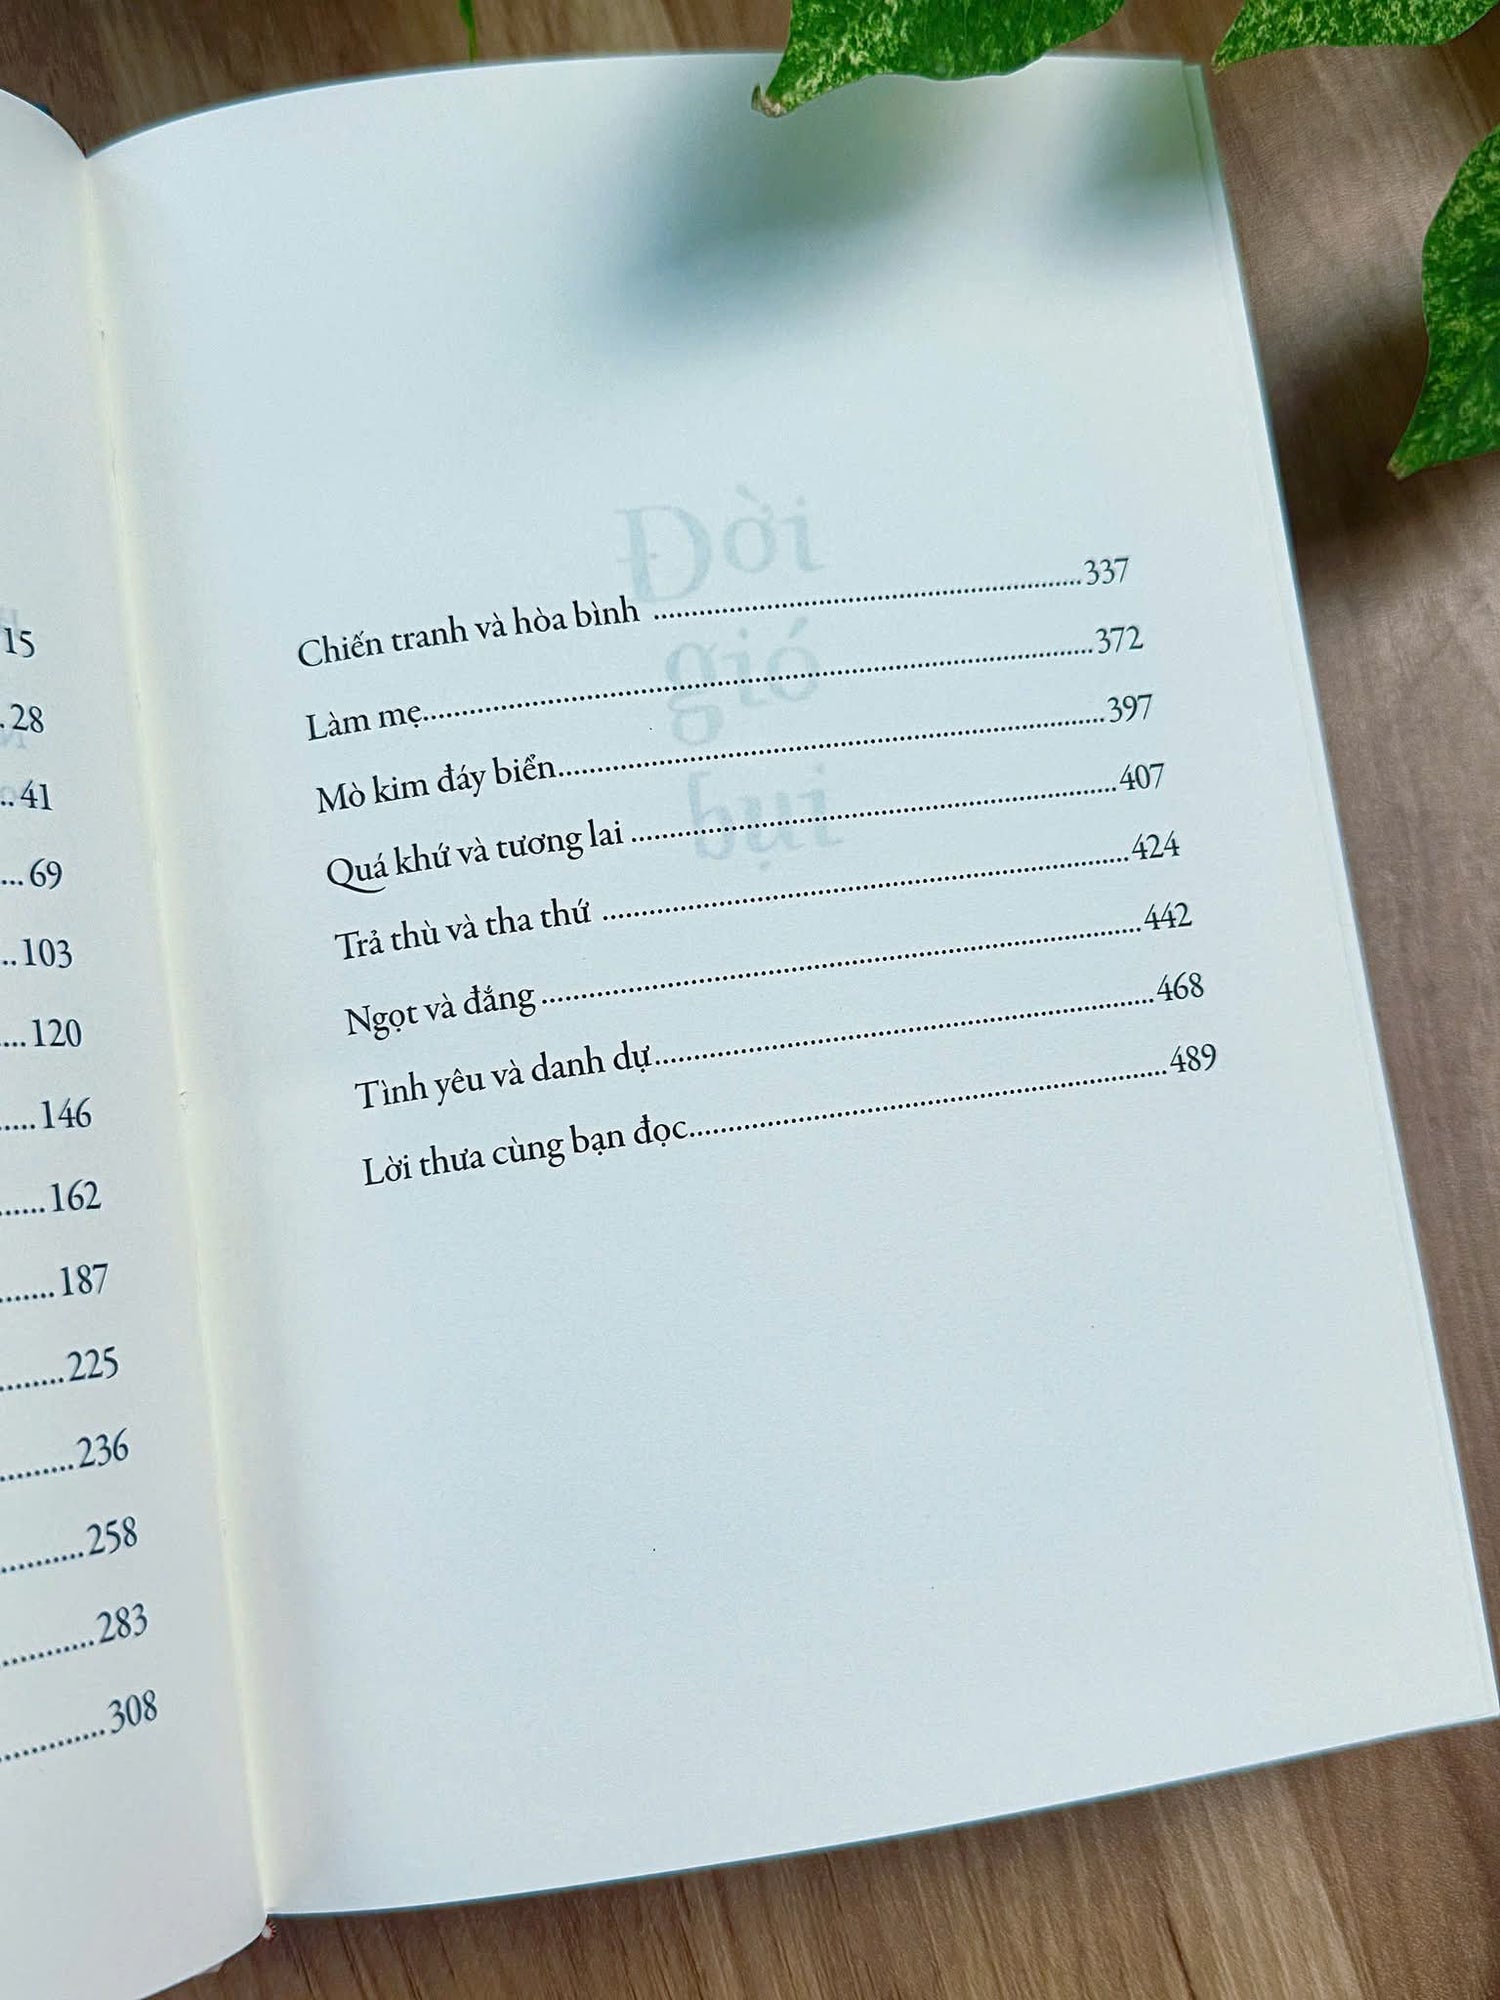 15
28
41
69
103
120
146
162
187
225
236
258
283
308
Đời
gió
bụi
Chiến tranh và hòa bình ........................................337
Làm mẹ........................................372
Mò kim đáy biển........................................397
Quá khứ và tương lai ........................................407
Trả thù và tha thứ ........................................424
Ngọt và đắng ........................................442
Tình yêu và danh dự........................................468
Lời thưa cùng bạn đọc........................................489